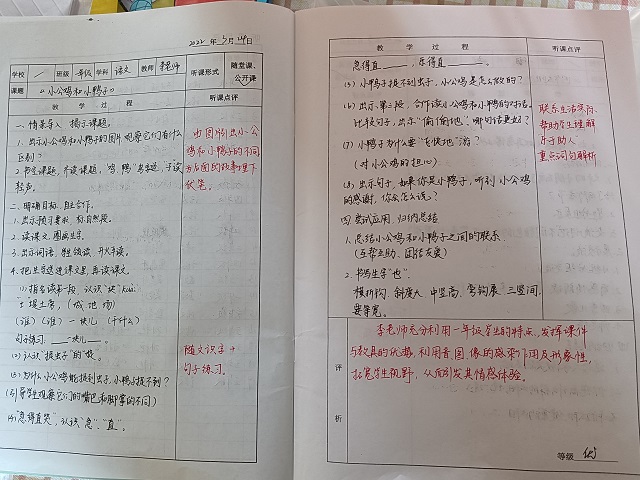 2022年5月19日
学校 / 班级 一年级 学科 语文 教师 李老师 听课形式 随堂课、公开课
课题 《小公鸡和小鸭子》
教 学 过 程 听课点评
一、情景导入 揭示课题
1. 出示小公鸡和小鸭子的图片,观察它们有什么
区别?
2. 书写课题,齐读课题,"鸡、鸭"是生字,子读
轻声。
二、明确目标,自主合作。
1. 出示预习要求,标自然段。
2. 读课文,圈画生字。
3. 出示词语,领读,开火车读。
4. 把生字送进课文里,再读课文。
(1) 指名读第一段,认识"块"kuài
土:提土旁,(城 地 场)
(谁)(谁)一块儿(干什么)
句子练习。 一块儿 。
(2) 认识"捉虫子"的"捉"。
(3) 为什么小公鸡能捉到虫子,小鸭子捉不到?
(引导学生观察它们的嘴巴和脚掌的不同)
(4) "急得直哭",认识"急"、"直"。
由图引出小公
鸡和小鸭子的不同
为后面的故事埋下
伏笔。
随文识字+
句子练习。
教 学 过 程 听课点评
急得直 ,乐得直 。
(5) 小鸭子捉不到虫子,小公鸡是怎么做的?
(6) 出示第三段,合作读小公鸡和小鸭的对话。
比较句子,出示"偷偷地",哪句话更好?
(7) 小鸭子为什么要"飞快地"游?
(对小公鸡的担心)
(8) 出示句子,如果你是小鸭子,听到小公鸡
的感谢,你会怎么说?
四、尝试应用,归纳总结
1. 总结小公鸡和小鸭子之间的联系
(互帮互助、团结友爱)
2. 书写生字"也"。
横折钩,斜度大,中竖高,弯钩展,三竖间
要等宽。
联系生活实际,
帮助学生理解
乐于助人
重点词句解析
评析
李老师充分利用一年级学生的特点,发挥课件
与教具的优势,利用音、图像的感染作用及形象性,
拓宽学生视野,从而引发其情感体验。
等级 优